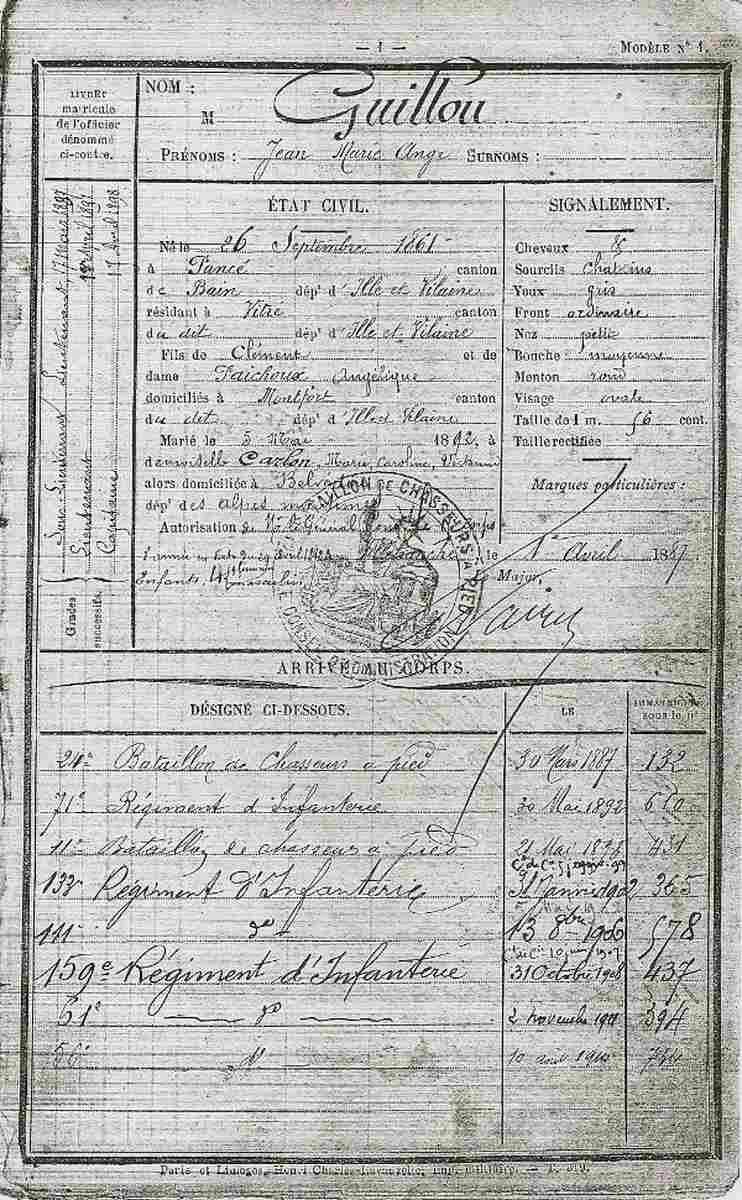 — 1 —
MODÈLE N° 1.
LIVRET
matricule
de l'officier
dénommé
ci-contre.
NOM :
M Guillou
PRÉNOMS : Jean Marie Ange SURNOMS :
Grades successifs.
Sous-Lieutenant
Lieutenant
Capitaine
17 Avril 1898
ÉTAT CIVIL.
Né le 26 Septembre 1861
à Pancé canton
de Bain dép^t d'Ille et Vilaine
résidant à Vitré canton
du dit dép^t d'Ille et Vilaine
Fils de Clément et de
dame Faichoux Angélique
domiciliés à Montfort canton
du dit dép^t d'Ille et Vilaine
Marié le 5 Mai 1892, à
demoiselle Carlon, Marie, Caroline,
alors domiciliée à
dép^t des Alpes maritimes
Autorisation de Général
Enfants, 4
le 1er Avril 1887
Le Major,
SIGNALEMENT.
Cheveux &
Sourcils châtains
Yeux gris
Front ordinaire
Nez petit
Bouche moyenne
Menton rond
Visage ovale
Taille de 1 m. 56 cent.
Taille rectifiée
Marques particulières :
BATAILLON DE CHASSEURS À PIED
CONSEIL
ARRIVÉ AU CORPS.
DÉSIGNÉ CI-DESSOUS.
LE
SOUS LE N°
24e Bataillon de Chasseurs à pied 30 Mars 1887 132
71e Régiment d'Infanterie 30 Mai 1892
11e Bataillon de chasseurs à pied 21 Mai 431
Régiment d'Infanterie 365
141e d° 13 8bre 1906 578
159e Régiment d'Infanterie 31 Octobre 1908 437
61e d° 2 novembre 1911 394
d°
Paris et Limoges, Henri Charles-Lavauzelle, imp. militaire.